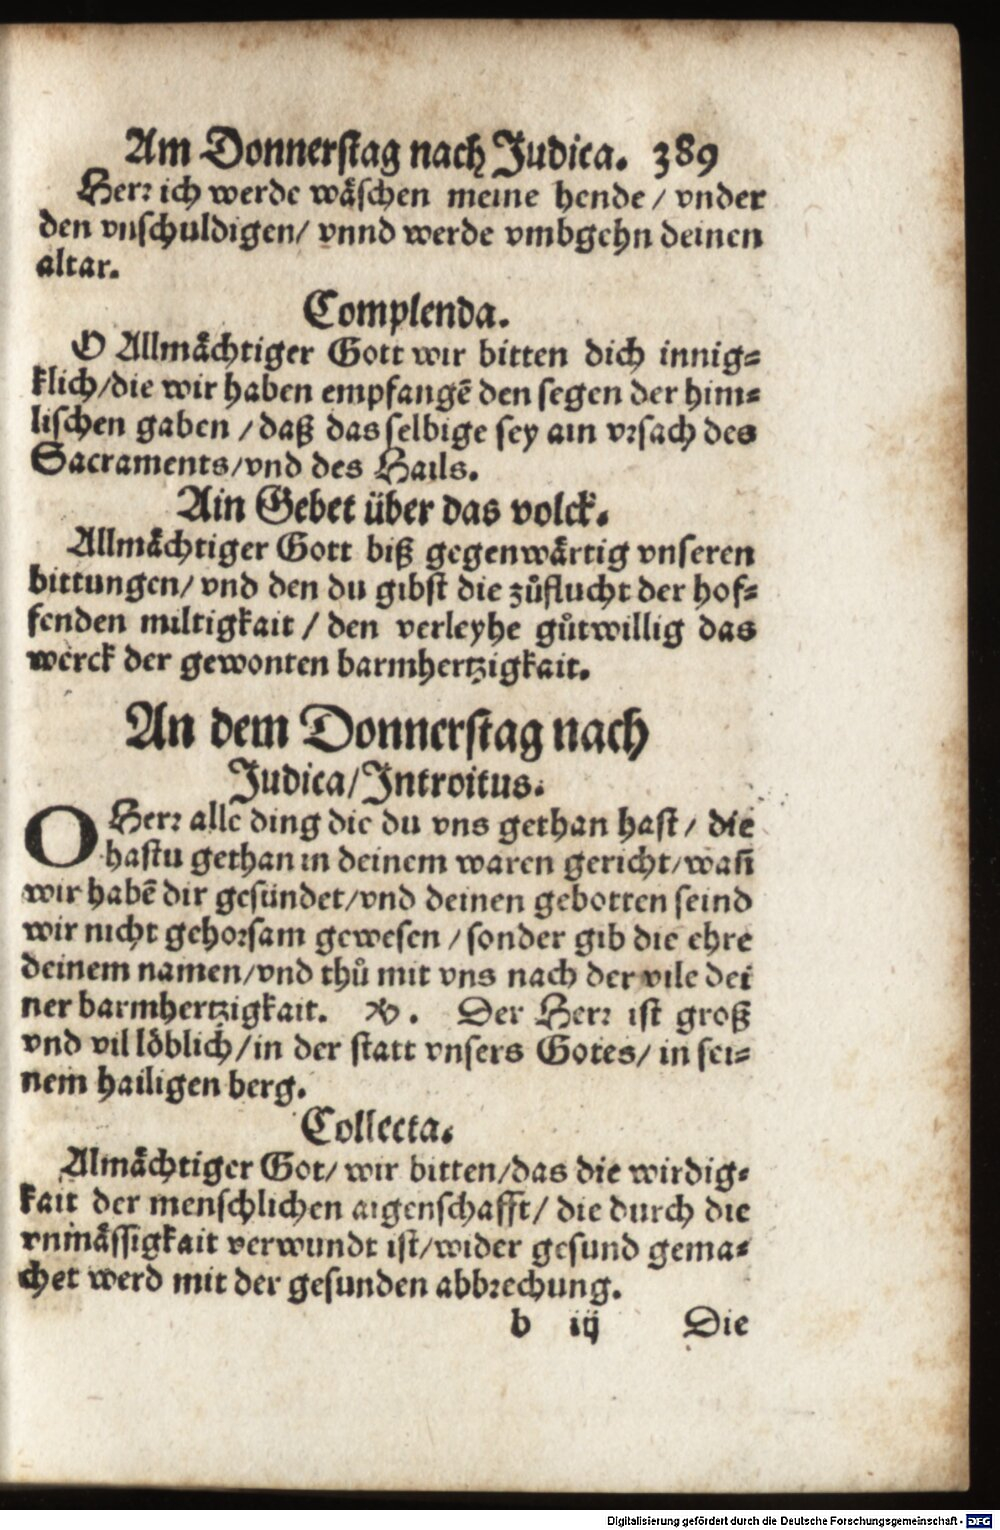 Am Donnerstag nach Judica. 389
Herr ich werde wäschen meine hende / vnder
den vnschuldigen/ vnnd werde vmbgehn deinen
altar.
Complenda.
O Allmächtiger Gott wir bitten dich innig⸗
klich/die wir haben empfangē den segen der him⸗
lischen gaben / daß das selbige sey ain vrsach des
Sacraments/vnd des Hails.
Ain Gebet über das volck.
Allmächtiger Gott biß gegenwärtig vnseren
bittungen/ vnd den du gibst die zůflucht der hof⸗
fenden miltigkait / den verleyhe gůtwillig das
werck der gewonten barmhertzigkait.
An dem Donnerstag nach
Judica/Introitus.
O Herr alle ding die du vns gethan hast / die
hastu gethan in deinem waren gericht/wañ
wir habē dir gesündet/vnd deinen gebotten seind
wir nicht gehorsam gewesen / sonder gib die ehre
deinem namen/vnd thů mit vns nach der vile dei
ner barmhertzigkait. ℣. Der Herr ist groß
vnd vil löblich/in der statt vnsers Gotes/ in sei⸗
nem hailigen berg.
Collecta.
Almächtiger Got/ wir bitten/das die wirdig⸗
kait der menschlichen aigenschafft/ die durch die
vnmässigkait verwundt ist/wider gesund gema⸗
chet werd mit der gesunden abbrechung.
b iij Die
Digitalisierung gefördert durch die Deutsche Forschungsgemeinschaft - DFG